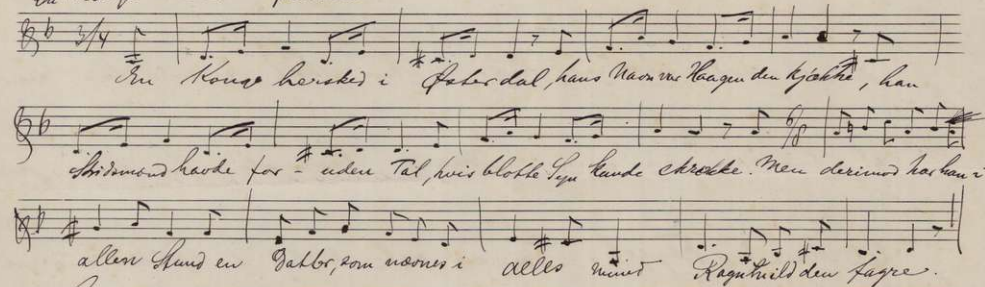 3/4
En Konge hersked i Østerdal, hans Navn var Haagen den kjække, han
Stridsmænd havde for-uden Tal, hvis blotte Syn kunde skrække. Men derimod har han i
6/8
allen Stund en Datter, som nævnes i alles mund Ragnhild den fagre.